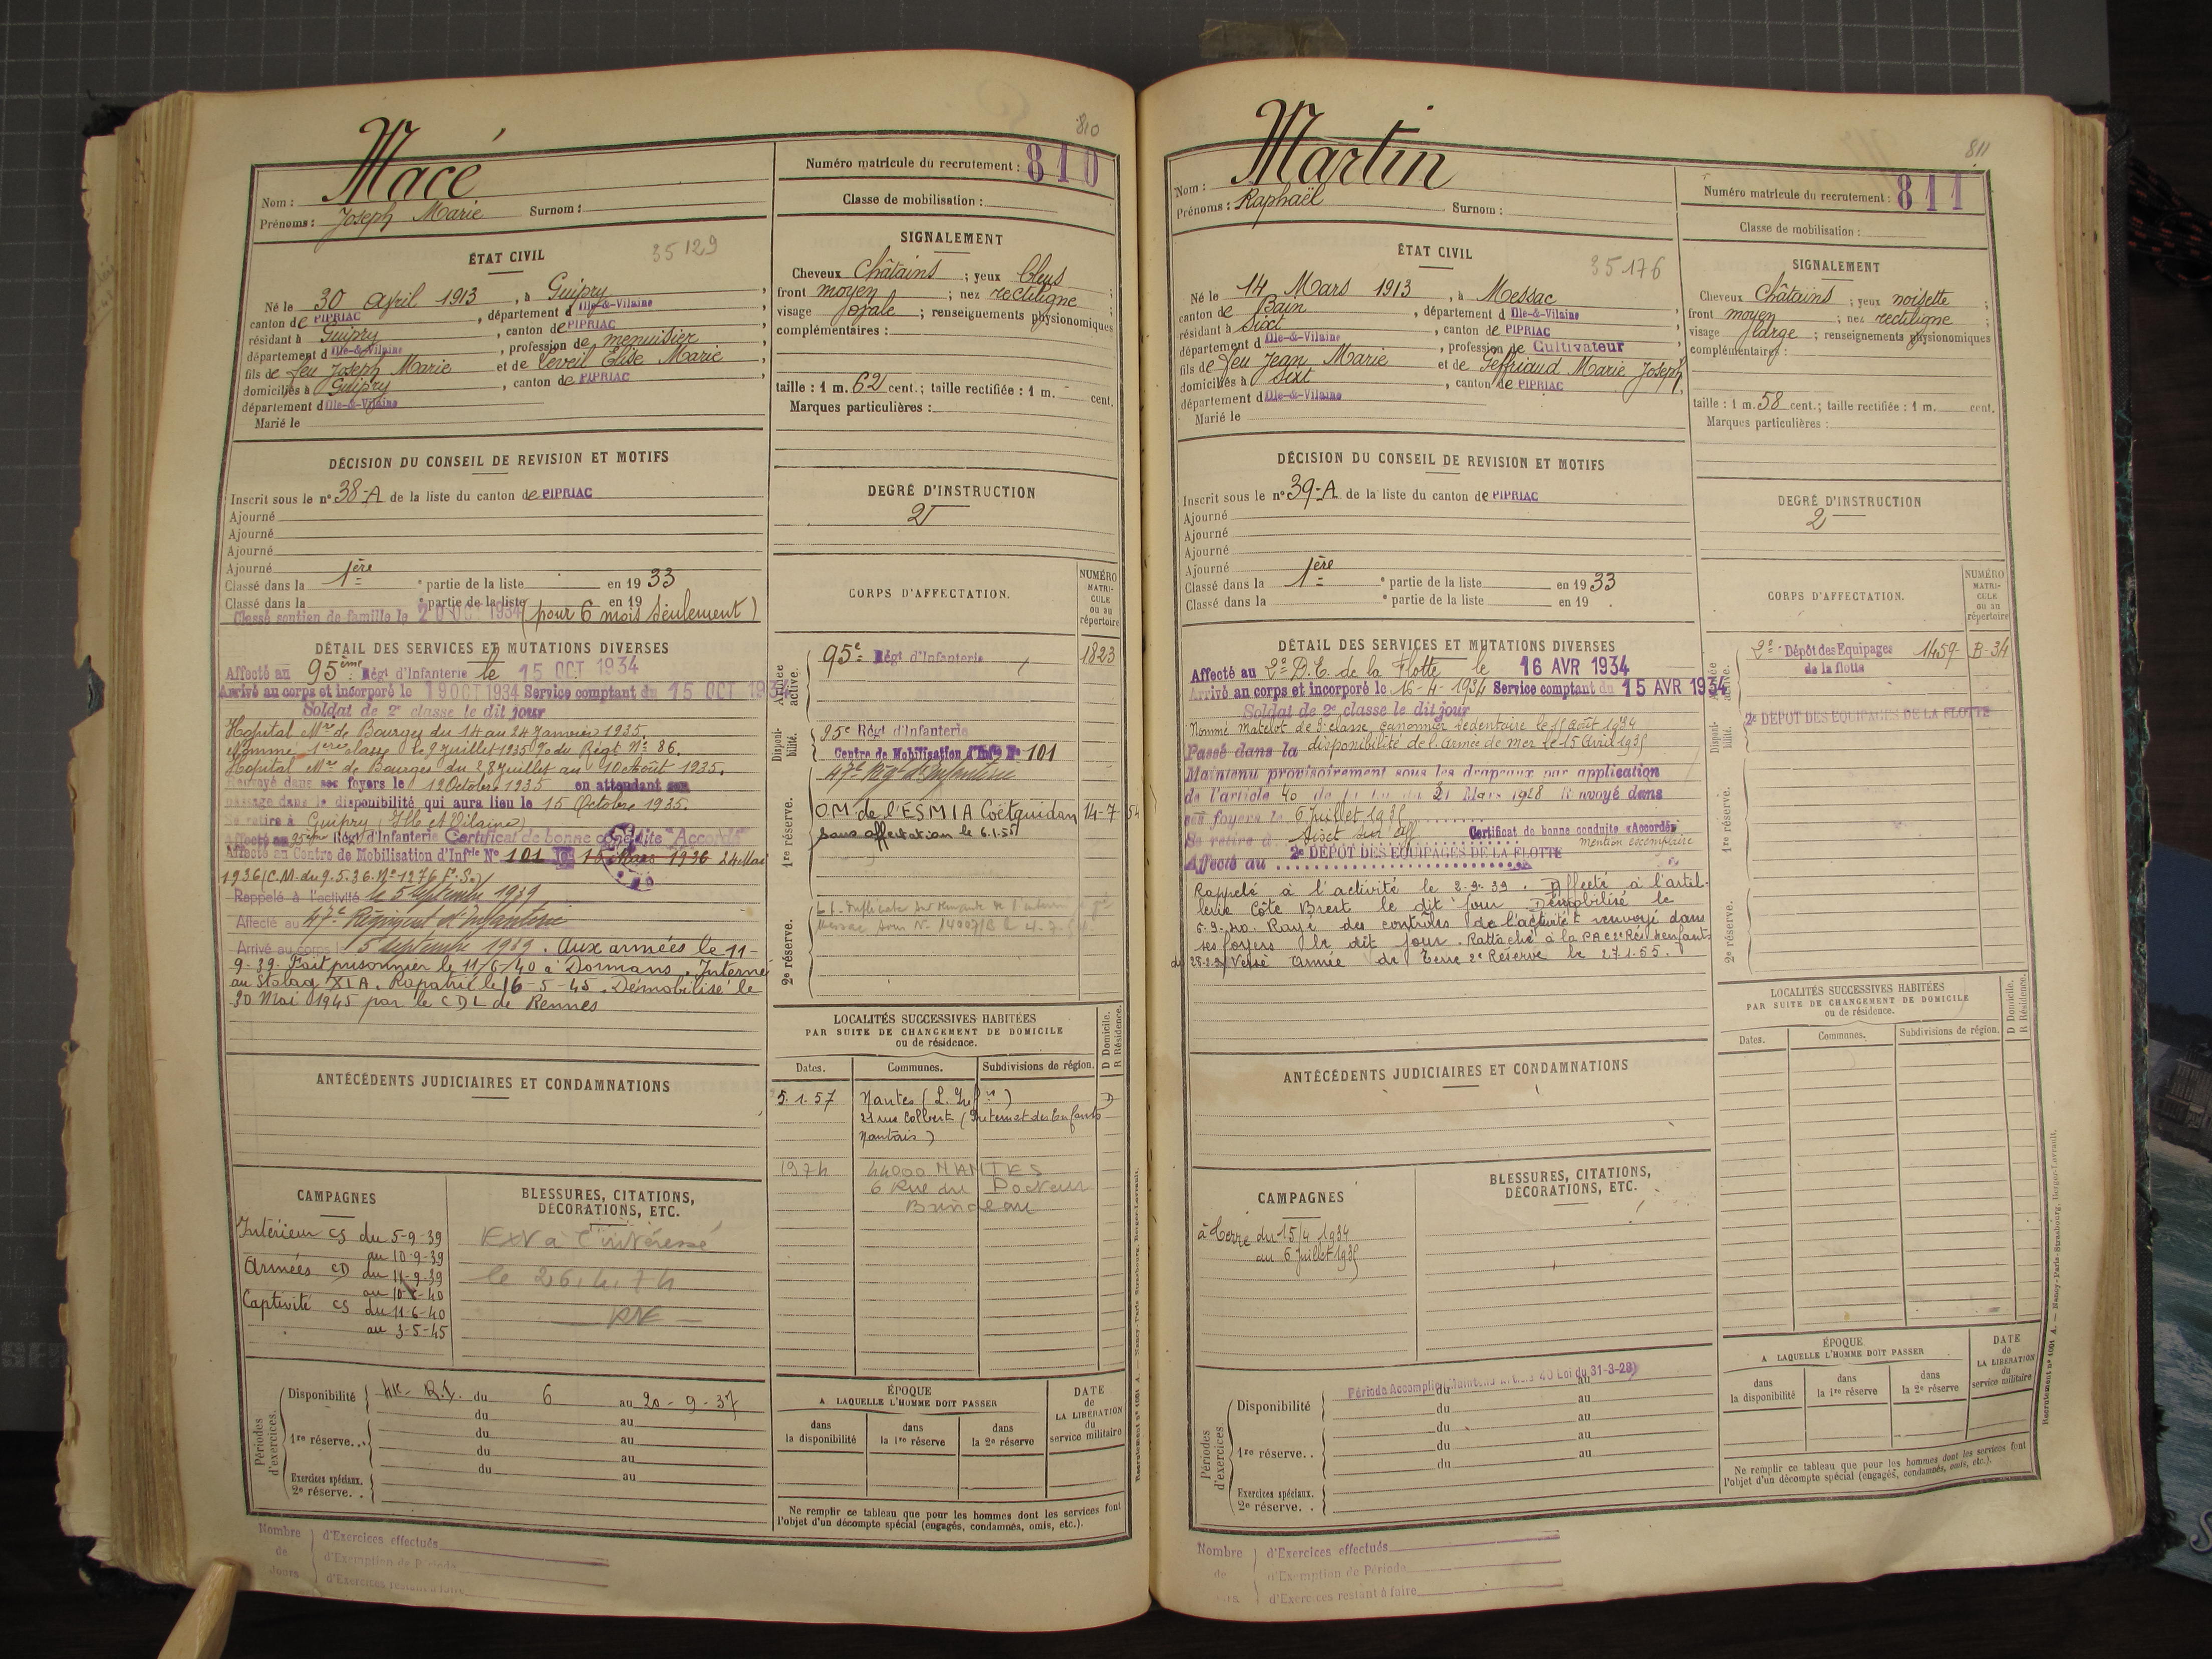 810
Macé
Nom :
Prénoms : Joseph Marie Surnom :
Numéro matricule du recrutement : 810
Classe de mobilisation :
ÉTAT CIVIL
35129
Né le 30 Avril 1913, à Guipry,
canton de PIPRIAC, département d'Ille-&-Vilaine,
résidant à Guipry, canton de PIPRIAC,
département d'Ille-&-Vilaine, profession de menuisier,
fils de feu Joseph Marie et de Léveil Elise Marie,
domiciliés à Guipry, canton de PIPRIAC,
département d'Ille-&-Vilaine
Marié le
SIGNALEMENT
Cheveux Châtains ; yeux bleus ;
front moyen ; nez rectiligne
visage ovale ; renseignements physionomiques
complémentaires :
taille : 1 m. 62 cent.; taille rectifiée : 1 m. cent.
Marques particulières :
DÉCISION DU CONSEIL DE REVISION ET MOTIFS
Inscrit sous le n° 38-A de la liste du canton de PIPRIAC
Ajourné
Ajourné
Ajourné
Ajourné
Classé dans la 1ère e partie de la liste en 1933
Classé dans la e partie de la liste en 19
Classé soutien de famille le 20 OCT 1934 (pour 6 mois seulement)
DEGRÉ D'INSTRUCTION
2
DÉTAIL DES SERVICES ET MUTATIONS DIVERSES
Affecté au 95ème Régt d'Infanterie le 15 OCT 1934
Arrivé au corps et incorporé le 19 OCT 1934 Service comptant du 15 OCT 1934
Soldat de 2e classe le dit jour
Hopital Mre de Bourges du 14 au 24 Janvier 1935.
Nommé 1ère classe le 9 Juillet 1935 O. du Régt N° 86.
Hopital Mre de Bourges du 28 Juillet au 10 Août 1935.
Renvoyé dans ses foyers le 12 Octobre 1935 en attendant son
passage dans la disponibilité qui aura lieu le 15 Octobre 1935.
Se retire à Guipry (Ille et Vilaine)
Affecté au 95ème Régt d'Infanterie Certificat de bonne conduite "Accordé"
Affecté au Centre de Mobilisation d'Infrie N° 101 le 16 Mars 1936 24 Mai
1936 (C.M. du 9.5.36. N° 1276 F.S.)
Rappelé à l'activité le 5 septembre 1939
Affecté au 47e Régiment d'Infanterie
Arrivé au corps le 5 septembre 1939. Aux armées le 11-
9-39. Fait prisonnier le 11/6/40 à Dormans. Interné
au Stalag XI A. Rapatrié le 16-5-45. Démobilisé le
20 Mai 1945 par le CDL de Rennes
CORPS D'AFFECTATION.
NUMÉRO MATRICULE ou au répertoire
Armée active.
95e Régt d'Infanterie 1823
Disponibilité.
95e Régt d'Infanterie
Centre de Mobilisation d'Infie N° 101
47e Régt d'Infanterie
1re réserve.
O.M. de l'ESMIA Coëtquidan 14-7 54
Sans affectation le 6.1.55
2e réserve.
ANTÉCÉDENTS JUDICIAIRES ET CONDAMNATIONS
LOCALITÉS SUCCESSIVES HABITÉES
PAR SUITE DE CHANGEMENT DE DOMICILE
ou de résidence.
D Domicile.
R Résidence.
Dates. Communes. Subdivisions de région.
5.1.57 Nantes (L. Infre) D
21 rue Colbert (Internat des Enfants
Nantais)
1974 44000 NANTES
6 Rue du Docteur
CAMPAGNES
Intérieur CS du 5-9-39
au 10-9-39
Armées CD du 11-9-39
au 10-6-40
Captivité CS du 11-6-40
au 3-5-45
BLESSURES, CITATIONS,
DÉCORATIONS, ETC.
EXV à l'intéressé
le 26.4.74
Périodes d'exercices.
Disponibilité du 6 au 20-9-37
du au
1re réserve. . du au
du au
du au
Exercices spéciaux.
2e réserve. .
ÉPOQUE
A LAQUELLE L'HOMME DOIT PASSER
dans la disponibilité
dans la 1re réserve
dans la 2e réserve
DATE de LA LIBÉRATION du service militaire
Ne remplir ce tableau que pour les hommes dont les services font
l'objet d'un décompte spécial (engagés, condamnés, omis, etc.).
Nombre de Jours
d'Exercices effectués
d'Exemption de Période
d'Exercices restant à faire
Recrutement n° 1091 A. — Nancy-Paris-Strasbourg, Berger-Levrault.
811
Martin
Nom :
Prénoms : Raphaël Surnom :
Numéro matricule du recrutement : 811
Classe de mobilisation :
ÉTAT CIVIL
35176
Né le 14 Mars 1913, à Messac,
canton de Bain, département d'Ille-&-Vilaine,
résidant à Sixt, canton de PIPRIAC,
département d'Ille-&-Vilaine, profession de Cultivateur,
fils de feu Jean Marie et de Geffriaud Marie Joseph,
domiciliés à Sixt, canton de PIPRIAC,
département d'Ille-&-Vilaine
Marié le
SIGNALEMENT
Cheveux Châtains ; yeux noisette ;
front moyen ; nez rectiligne ;
visage large ; renseignements physionomiques
complémentaires :
taille : 1 m. 58 cent.; taille rectifiée : 1 m. cent.
Marques particulières :
DÉCISION DU CONSEIL DE REVISION ET MOTIFS
Inscrit sous le n° 39-A de la liste du canton de PIPRIAC
Ajourné
Ajourné
Ajourné
Ajourné
Classé dans la 1ère e partie de la liste en 1933
Classé dans la e partie de la liste en 19 .
DEGRÉ D'INSTRUCTION
2
DÉTAIL DES SERVICES ET MUTATIONS DIVERSES
Affecté au 2e D.E. de la Flotte le 16 AVR 1934
Arrivé au corps et incorporé le 16-4-1934 Service comptant du 15 AVR 1934
Soldat de 2e classe le dit jour
Nommé Matelot de 3e classe canonnier sédentaire le 1er Août 1934
Passé dans la disponibilité de l'armée de mer le 15 Avril 1935
Maintenu provisoirement sous les drapeaux par application
de l'article 40 de la loi du 31 Mars 1928 Renvoyé dans
ses foyers le 6 Juillet 1935
Se retire à Certificat de bonne conduite "Accordé"
mention exemplaire
Affecté au 2e DÉPOT DES EQUIPAGES DE LA FLOTTE
Rappelé à l'activité le 2-9-39. Affecté à l'artil-
lerie Côte Brest le dit jour Démobilisé le
6-9-40. Rayé des contrôles de l'activité et renvoyé dans
ses foyers le dit jour. Rattaché à la
Versé Armée de Terre 2e Réserve le 27.1.55.
CORPS D'AFFECTATION.
NUMÉRO MATRICULE ou au répertoire
Armée active.
2e Dépôt des Equipages 1459 B-34
de la flotte
Disponibilité.
2e DÉPOT DES EQUIPAGES DE LA FLOTTE
1re réserve.
2e réserve.
ANTÉCÉDENTS JUDICIAIRES ET CONDAMNATIONS
LOCALITÉS SUCCESSIVES HABITÉES
PAR SUITE DE CHANGEMENT DE DOMICILE
ou de résidence.
D Domicile.
R Résidence.
Dates. Communes. Subdivisions de région.
CAMPAGNES
à terre du 15/4 1934
au 6 Juillet 1935
BLESSURES, CITATIONS,
DÉCORATIONS, ETC.
Périodes d'exercices
Période Accomplie (Maintenu Article 40 Loi du 31-3-28)
Disponibilité du au
du au
1re réserve. . du au
du au
du au
Exercices spéciaux.
2e réserve. .
ÉPOQUE
A LAQUELLE L'HOMME DOIT PASSER
dans la disponibilité
dans la 1re réserve
dans la 2e réserve
DATE de LA LIBÉRATION du service militaire
Ne remplir ce tableau que pour les hommes dont les services font
l'objet d'un décompte spécial (engagés, condamnés, omis, etc.).
Nombre de
d'Exercices effectués
d'Exemption de Période
d'Exercices restant à faire
Recrutement n° 1091 A. — Nancy-Paris-Strasbourg, Berger-Levrault.